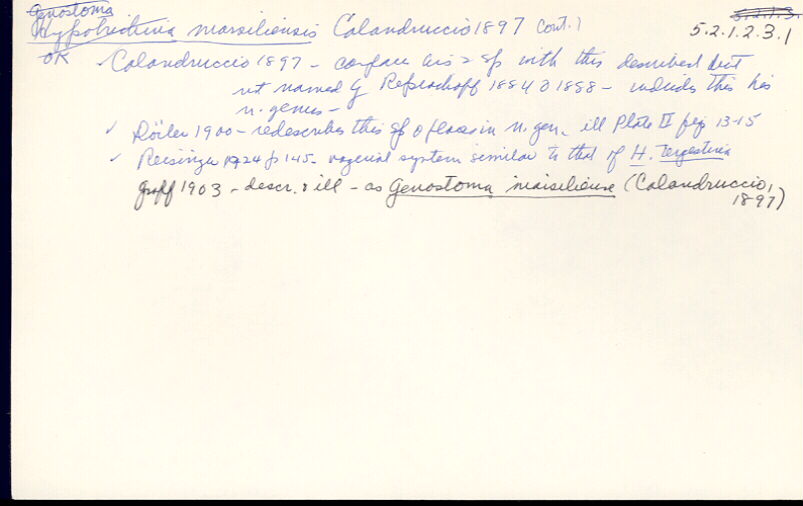 Genostoma
Hypotrichina marsiliensis Calandruccio 1897 cont.)
5.2.1.3.
5.2.1.2.3.1
OK ✓ Calandruccio 1897 - compare his 2 sp with this described but
not named by Repiachoff 1884 & 1888 - includes this his
n. genus -
✓ Böhmig 1900 - redescribes this sp & places in n. gen - ill Plate II figs 13-15
✓ Reisinger 1924 p 145 - vaginal system similar to that of H. tergestina
Graff 1903 - descr. & ill - as Genostoma marsiliense (Calandruccio,
1897)